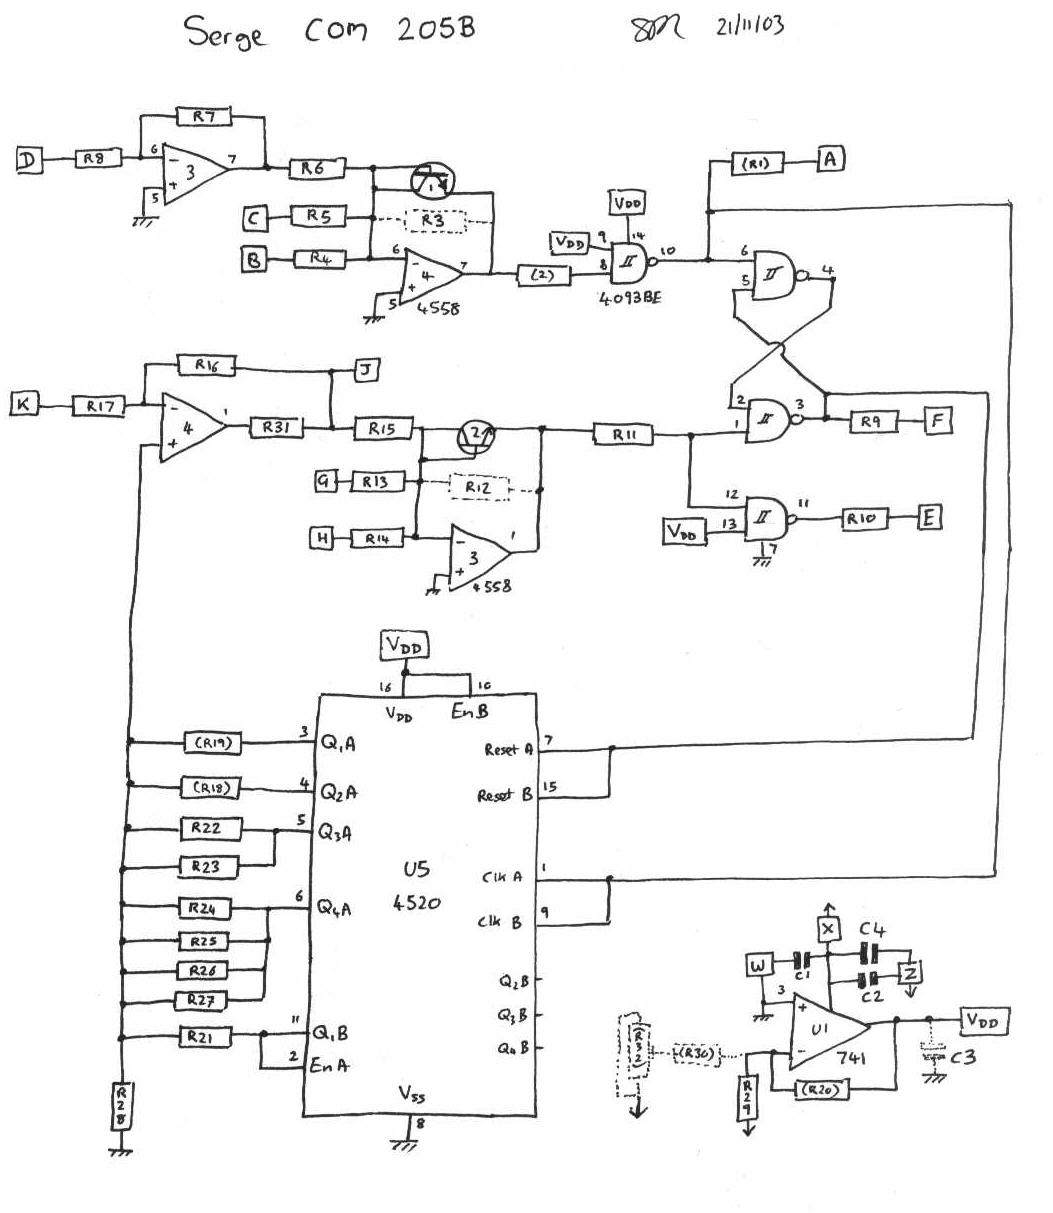 Serge COM 205B
21/11/03
R7
D R8 6 - 3 + 5 7 R6 1
C R5 R3
B R4 6 - 4 + 5 7
4558
(2)
VDD
VDD 9 14
8 II 10
4093BE
(R1) A
6 5 II 4
R16 J
K R17 - 4 + 1 R31 R15 2
G R13 R12
H R14 - 3 + 1
4558
R11
2 1 II 3 R9 F
12 II 11 R10 E
VDD 13
7
VDD
16 10
VDD EnB
(R19) 3 Q1A
(R18) 4 Q2A
R22 5 Q3A
R23
R24 6 Q4A
R25
R26
R27
R21 11 Q1B
2 EnA
R28
U5
4520
Reset A 7
Reset B 15
Clk A 1
Clk B 9
Q2B
Q3B
Q4B
VSS
8
X
W C1 C4
C2 Z
3 + U1 -
741
VDD
C3
(R32) (R30)
R29
(R20)